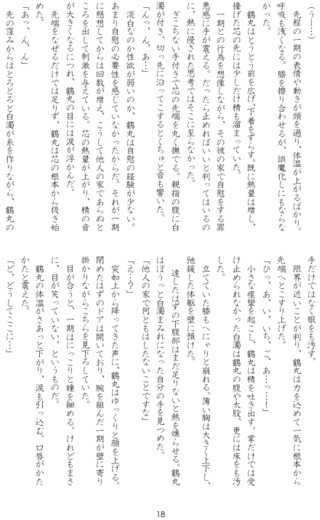 (う……)
先程の一期の表情や動きが頭を過り、体温が上がるばかり。
呼吸も浅くなる。膝を擦り合わせるが、誤魔化しにもならな
かった。
鶴丸はとうとう前を広げ、下着をずらす。既に熱量は増し、
擡げた芯の先には少しだけ精も溜まっていた。
一期との行為を想像しながら、その彼の家で自慰をする罪
悪感に手が震える。だったら止めればいいと判ってはいるの
に、熱に侵された思考ではそこに至らなかった。
ぎこちない手付きで芯の先端を丸く撫でる。親指の腹に白
濁が付き、切っ先に沿ってこするとくちゅと音も響いた。
「んっ、ぁ……」
淡白なのか性欲が弱いのか、鶴丸は自慰の経験が少ない。
あまり自慰の必要性を感じていなかったからだ。それが一期
に懸想してからは回数が増え、こうして他人の家であらぬと
ころを出して刺激を与えている。芯の熱量が上がり、精の音
が大きくなるにつれ、鶴丸の目には涙が浮かんだ。
先端をなぜるだけでは足りず、鶴丸は芯の根本から扱き始
めた。
「あっ、ん、ん」
先の窪みからはとろとろと白濁が糸を作りながら、鶴丸の
手だけではなく服をも汚す。
限界が近いことが判り、鶴丸は力を込めて一気に根本から
先端へとこすり上げた。
「ひっ、あ、い、いち、ご、あ……っ」
小さな痙攣を起こし、鶴丸は精を吐き出す。掌だけでは受
け止められなかった白濁は鶴丸の腹や太股、更には床をも汚
した。
立てていた膝もへにゃりと崩れる。薄い胸は大きく上下し、
弛緩した体躯を壁に預けた。
達したはずの下腹部はまだ足りないと熱を燻らせる。鶴丸
はぼうっと白濁まみれになった自分の手を見つめた。
「他人の家で何ともはしたないことですな」
「え……？」
突如上から降ってきた声に、鶴丸はゆっくりと顔を上げる。
閉めたはずのドアは開いており、腕を組んだ一期が壁に寄り
掛かりながらこちらを見下ろしていた。
目が合うと、一期はにっこりと瞳を細める。けれどもまさ
に、目が笑っていない、というものだ。
鶴丸の体温がさあっと下がり、涙も引っ込む。口唇がかた
かたと震えた。
「ど、どうしてここに……」
18